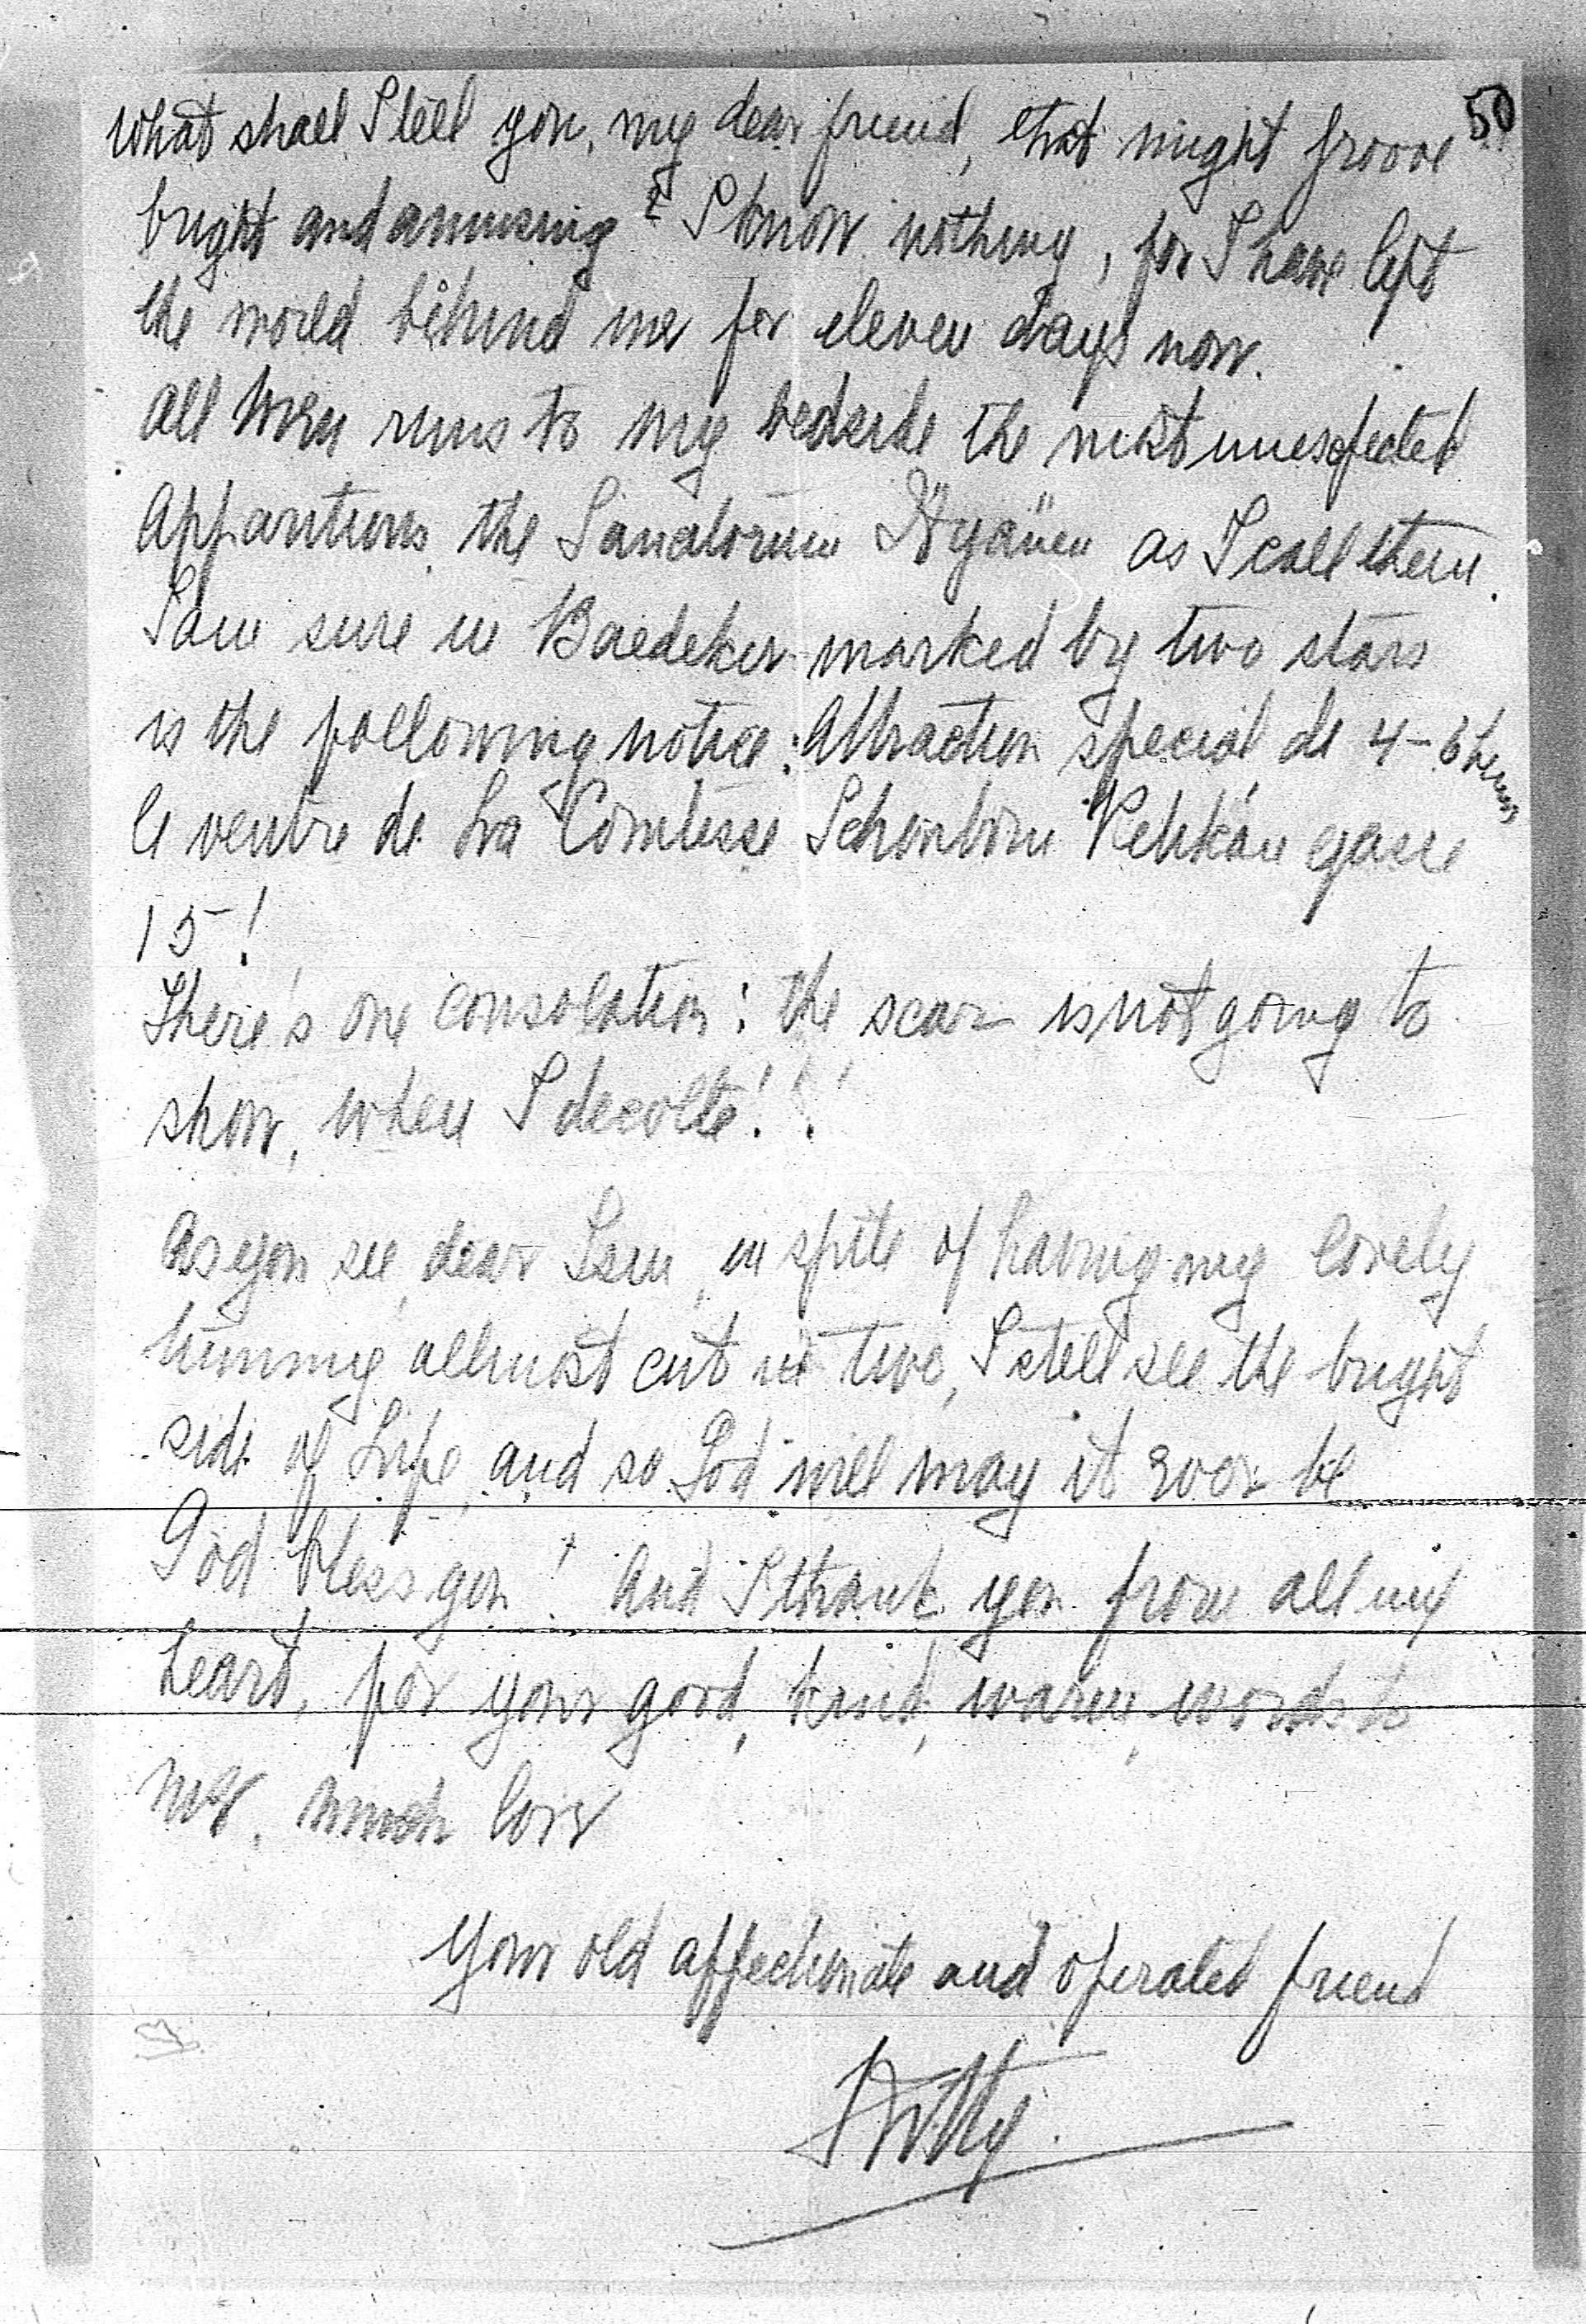 50
What shall I tell you, my dear friend, that might proove
bright and amusing? I know nothing, for I have left
the world behind me for eleven days now.
all Wien runs to my bedside the most unexpected
Apparitions, the Sanatorium Hyänen as I call them.
I am sure in Baedeker marked by two stars
is the following notice: Attraction special de 4-6 heures
le ventre de La Comtesse Schonborn Pelikán gasse
15!
There's one consolation: the scar is not going to
show, when I decolte!!!
As you see, dear Sam, in spite of having my lovely
tummy allmost cut in two, I still see the bright
side of Life, and so God will may it ever be
God bless you! And I thank you from all my
heart, for your good, kind, warm, words to
me. Much love
Your old affectionate and operated friend